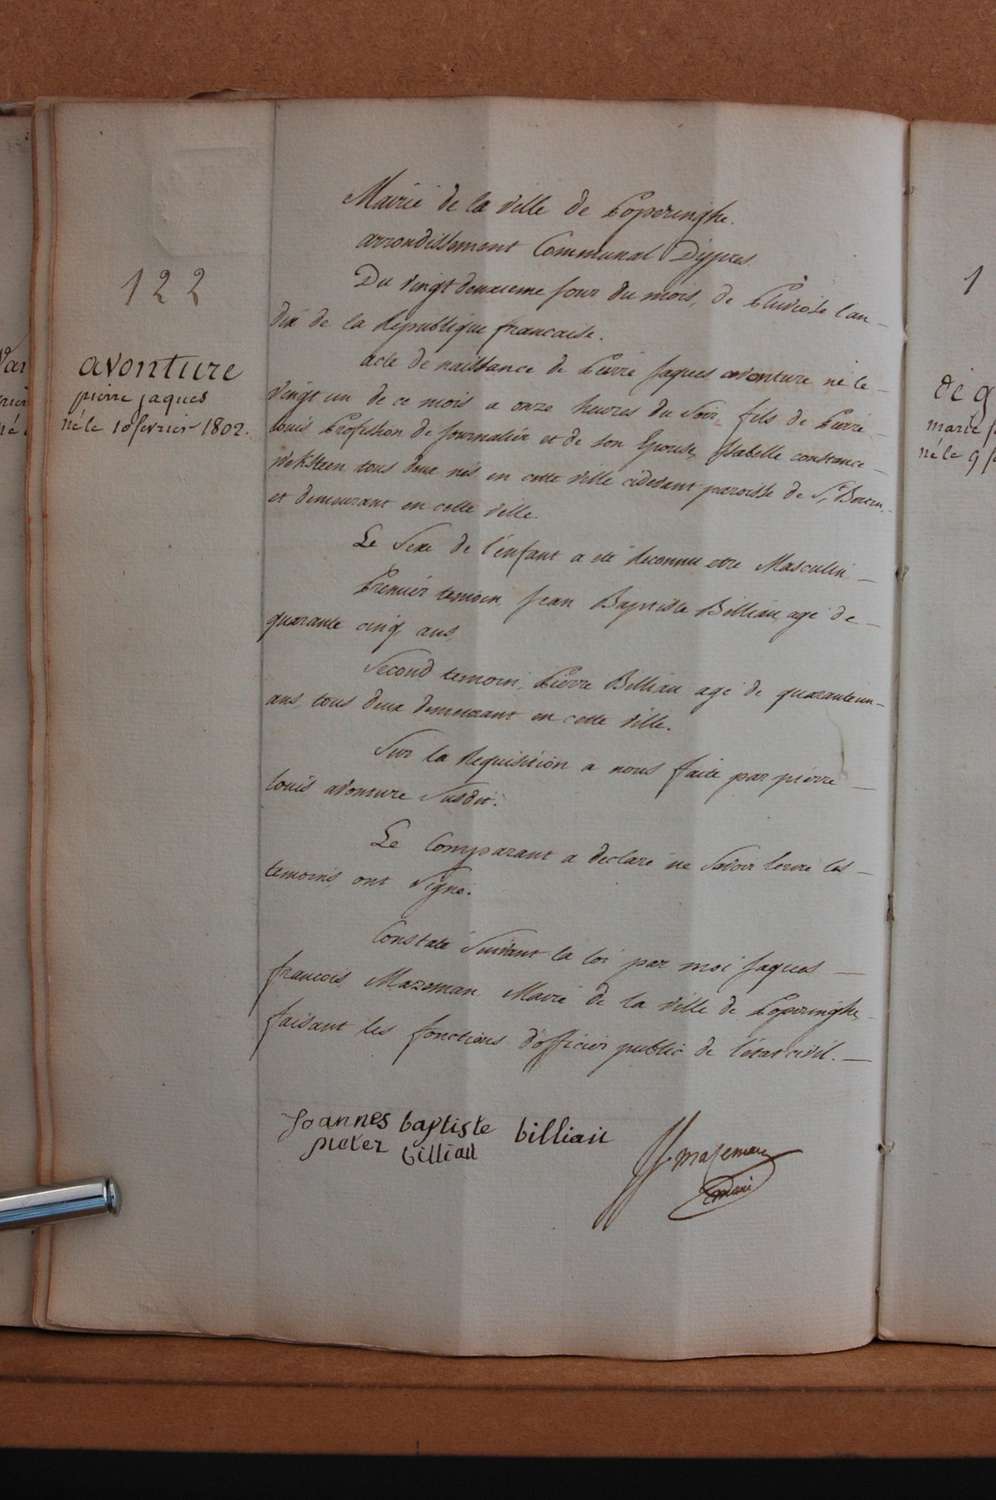 122
avonture
pierre jaques
né le 10 fevrier 1802.
Mairie de la ville de Poperinghe.
arrondissement Communal D'ypres
Du vingt deuxieme jour du mois, de Pluviose l'an
dix de la Republique francaise.
acte de naissance de Pierre Jaques avonture né le
vingt un de ce mois a onze heures du Soir, fils de Pierre
louis Profession de Journalier et de son Epouse, Isabelle constance
tous deux nés en cette ville cidevant paroisse de St. Bertin
et demeurant en cette ville.
Le Sexe de l'enfant a eté Reconnu etre Masculin
Premier temoin, Jean Baptiste Billiau, agé de
quarante cinq ans
Second temoin, Pierre Billiau agé de quaranteun
ans, tous deux demeurant en cette ville.
Sur la Requisition a nous faite par pierre
louis avonture Susdit.
Le Comparant a declaré ne Savoir les
temoins, ont Signé.
Constaté Suivant la loi par moi Jaques
francois Mazeman Maire de la ville de Poperinghe
faisant les fonctions d'officier public de l'état civil.
Joannes baptiste billiau
pieter billiau
JJ mazeman
maire
1
deg
marie j
né le 9 f